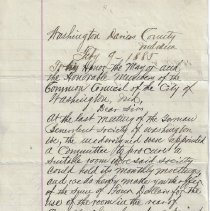 Washington Daviess County
Indiana
Feby 9 1885
To the Honor the Mayor and
the Honorable Members of the
Common Council of the City of
Washington Ind,
Dear Sirs
At the last meeting of the German
Benevolent Society of Washington
Ind, the undersigned were appointed
a Committee to procure a
suitable room where said society
could hold its monthly meetings
and we do hereby make you the offer
of the sum of Dollars for the
use of the room in the rear of